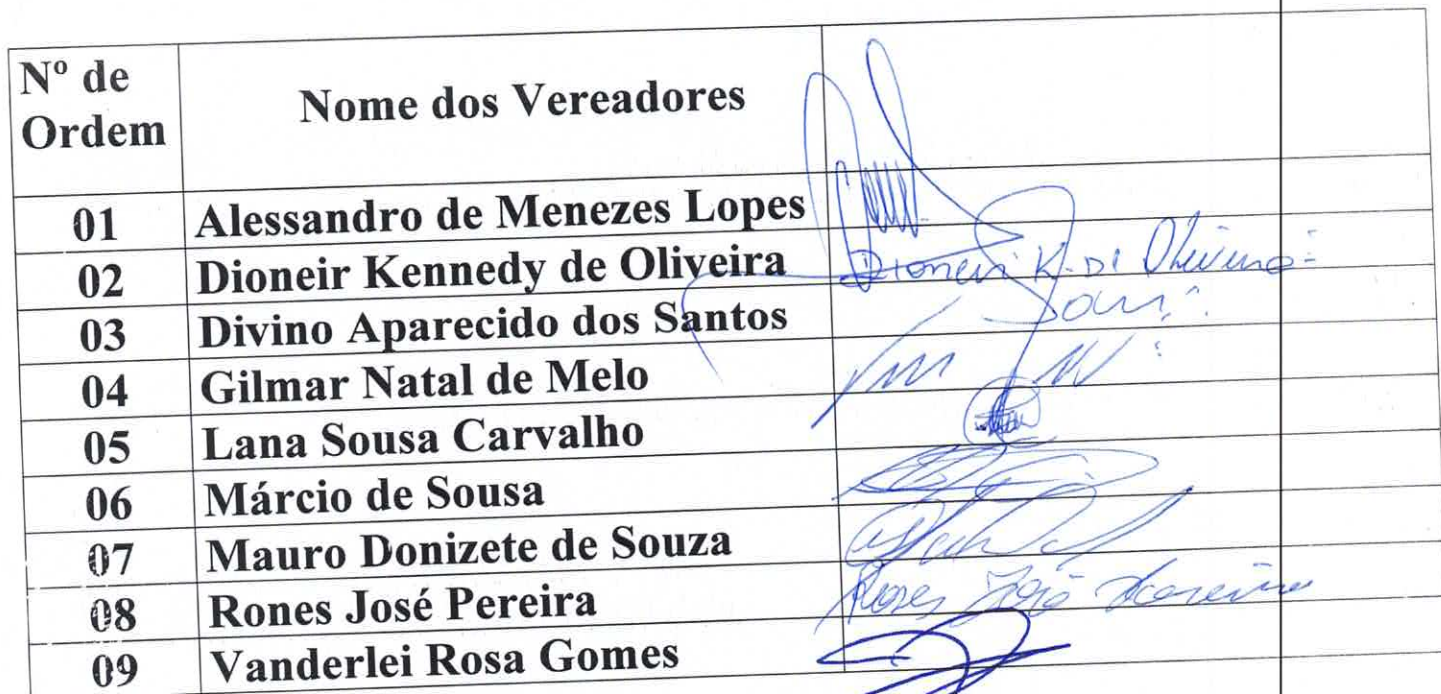 Nº de
Ordem
Nome dos Vereadores
01 Alessandro de Menezes Lopes
02 Dioneir Kennedy de Oliveira Dioneir K. DI Oliveira
03 Divino Aparecido dos Santos
04 Gilmar Natal de Melo
05 Lana Sousa Carvalho
06 Márcio de Sousa
07 Mauro Donizete de Souza
08 Rones José Pereira Rones José Pereira
09 Vanderlei Rosa Gomes